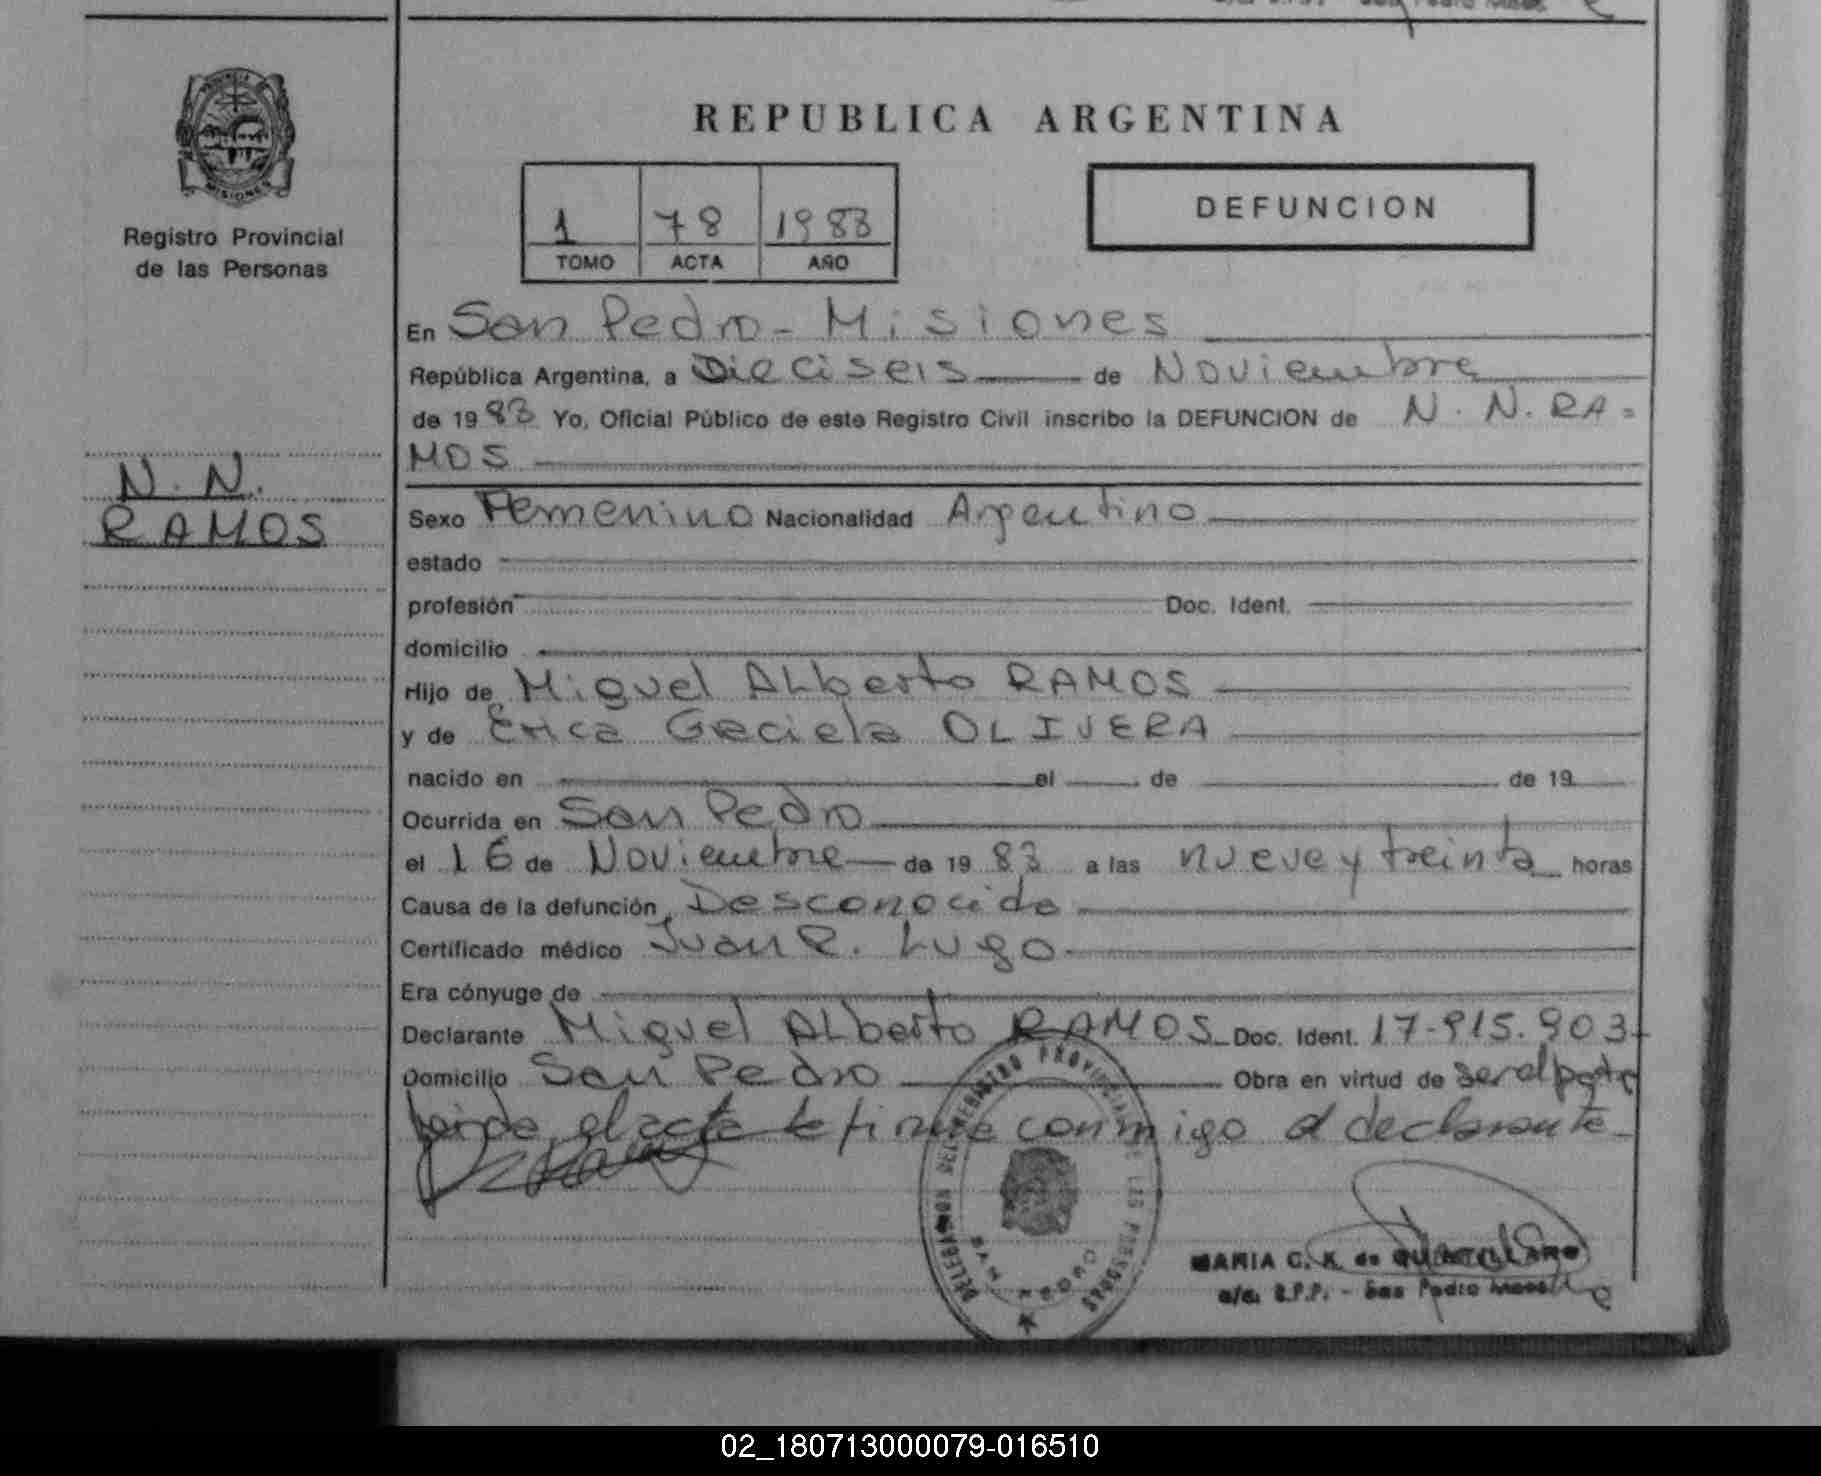 REPUBLICA ARGENTINA
PROVINCIA
MISIONES
Registro Provincial
de las Personas
1 78 1983
TOMO ACTA AÑO
DEFUNCION
En San Pedro - Misiones
República Argentina, a Dieciseis de Noviembre
de 19 83 Yo, Oficial Público de este Registro Civil inscribo la DEFUNCION de N. N. RA=
MOS
N. N.
RAMOS
Sexo Femenino Nacionalidad Argentino
estado
profesión Doc. Ident.
domicilio
Hijo de Miguel ALberto RAMOS
y de Erica Graciela OLIVERA
nacido en el de de 19
Ocurrida en San Pedro
el 16 de Noviembre de 19 83 a las nueve y treinta horas
Causa de la defunción Desconocida
Certificado médico Juan R. Lugo
Era cónyuge de
Declarante Miguel ALberto RAMOS Doc. Ident. 17-915.903-
Domicilio San Pedro Obra en virtud de ser el padre
Leida el acta la firma conmigo el declarante
DELEGACION DEL REGISTRO PROVINCIAL DE LAS PERSONAS
SAN PEDRO
MARIA C. K. de
a/c. R.P.P. - San Pedro Mnes.
02_180713000079-016510